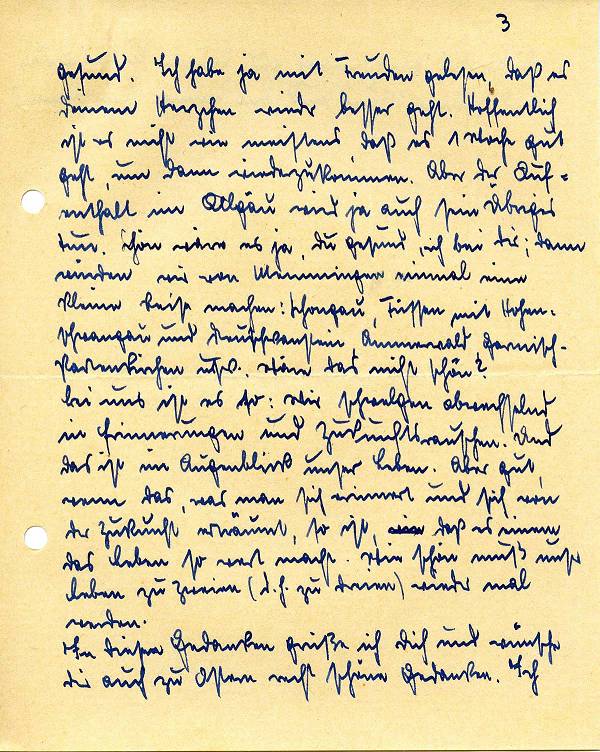 3
gesund. Ich habe ja mit Freuden gelesen, daß es
Deinem Herzchen wieder besser geht. Hoffentlich
ist es nicht wie meistens, daß es 1 Woche gut
geht, um dann wiederzukommen. Aber der Auf=
enthalt im Allgäu wird ja auch sein Übriges
tun. Schön wäre es ja, Du gesund, ich bei Dir; dann
würden wir von Memmingen einmal eine
kleine Reise machen: Schongau, Füssen mit Hohen-
schwangau und Neuschwanstein Ammerwald Garmisch-
Partenkirchen usw. Wäre das nicht schön?
Bei uns ist es so: Wir schwelgen abwechselnd
in Erinnerungen und Zukunftsrauschen. Und
das ist im Augenblick unser Leben. Aber gut,
wenn das, was man sich erinnert und sich von
der Zukunft erträumt, so ist, daß es einem
das Leben so wert macht. Wie schön muß unser
Leben zu zweien (d.h. zu dreien) wieder mal
werden.
In diesen Gedanken grüße ich Dich und wünsche
Dir auch zu Ostern recht schöne Gedanken. Ich